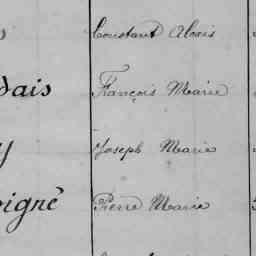 Constant Alexis
dais François Marie
y Joseph Marie
oigné Pierre Marie